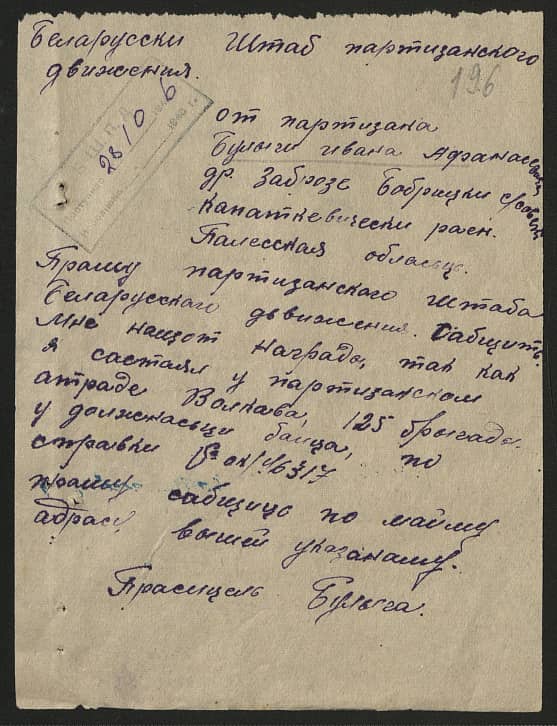 Беларусски Штаб партизанского
движения.
196
28/10 6
от партизана
Булыги ивана Афанасевича
др. Заброзе Бобрицки с/совет
Капаткевически раен.
Палесская обласьць.
Прашу партизанского штаба
Беларусского движения. Сабщить
мне нащот награды, так как
я састаял у партизанском
атраде Волкава, 125 брыгады.
у должнасьци байца, по
справки
прашу сабщиць по майму
адрасу вышей указанаму.
Прасицель Булыга.